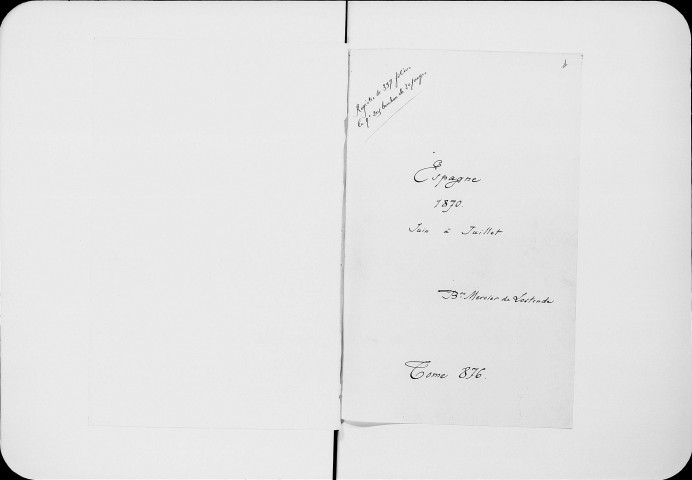 1
Registre de 357 folios
Le
Espagne
1870.
Juin à Juillet
Bon Mercier de Lostende
Tome 876.